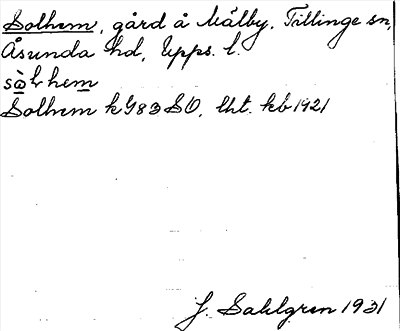 Solhem, gård å Mälby. Tillinge sn,
Åsunda hd, Upps. l.
Solhem k983SO, lht. kb 1921
J. Sahlgren 1931